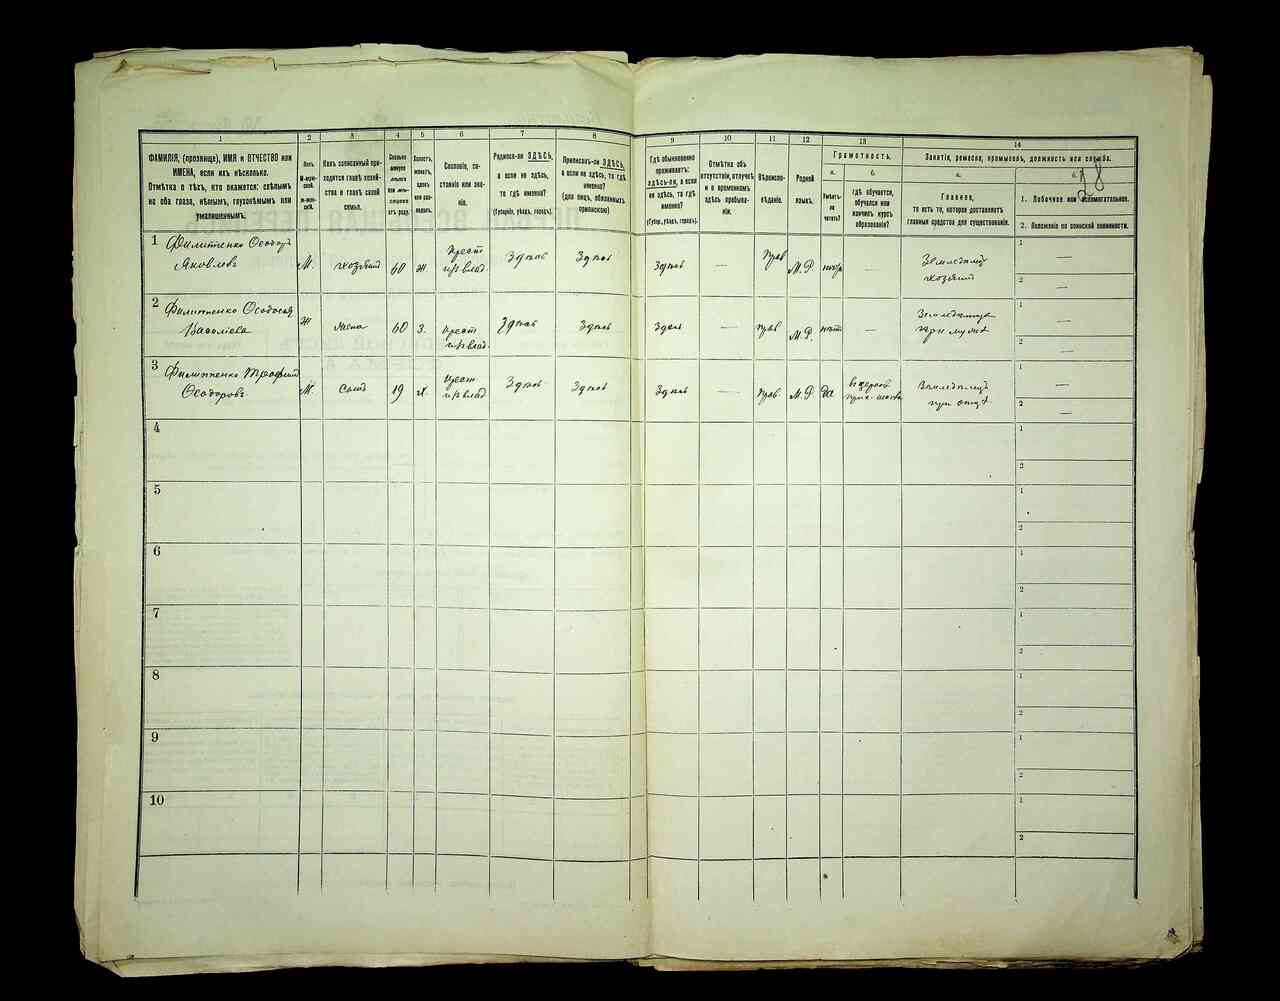 28
1 2 3 4 5 6 7 8 9 10 11 12 13 14
ФАМИЛІЯ, (прозвище), ИМЯ и ОТЧЕСТВО или
ИМЕНА, если ихъ нѣсколько.
Отмѣтка о тѣхъ, кто окажется: слѣпымъ
на оба глаза, нѣмымъ, глухонѣмымъ или
умалишеннымъ.
Полъ
М-мужской.
Ж-женскій.
Какъ записанный приходится
главѣ хозяйства
и главѣ своей
семьи.
Сколько
минуло
лѣтъ
или мѣсяцевъ
отъ роду.
Холостъ,
женатъ,
вдовъ
или разведенъ.
Сословіе, состояніе
или званіе.
Родился-ли ЗДѢСЬ,
а если не здѣсь,
то гдѣ именно?
(Губернія, уѣздъ, городъ).
Приписанъ-ли ЗДѢСЬ,
а если не здѣсь, то гдѣ
именно?
(для лицъ, обязанныхъ
припискою)
Гдѣ обыкновенно
проживаетъ:
здѣсь-ли, а если
не здѣсь, то гдѣ
именно?
(Губерн., уѣздъ, городъ).
Отмѣтка объ
отсутствіи, отлучкѣ
и о временномъ
здѣсь пребываніи.
Вѣроисповѣданіе.
Родной
языкъ.
Грамотность.
а.
Умѣетъ-ли
читать?
б.
гдѣ обучается,
обучался или
кончилъ курсъ
образованія?
Занятіе, ремесло, промыселъ, должность или служба.
а.
Главное,
то есть то, которое доставляетъ
главныя средства для существованія.
б.
1. Побочное или вспомогательное.
2. Положеніе по воинской повинности.
1 Филипенко Ѳеодоръ
Яковлевъ М. хозяинъ 60 ж. Крест. Здѣсь Здѣсь Здѣсь — Прав М.Р. — Земледѣлецъ
хозяинъ
1 —
2 —
2 Филипенко Ѳеодосія
Василіева Ж жена 60 З. Крест. Здѣсь Здѣсь Здѣсь — прав М.Р. нѣт. — Земледѣлица
при мужѣ
1 —
2 —
3 Филипенко Трофимъ
Ѳеодоровъ М. сынъ 19 х. Крест. Здѣсь Здѣсь Здѣсь — Прав. М.Р. да Земледѣлецъ
при отцѣ
1 —
2 —
4 1
2
5 1
2
6 1
2
7 1
2
8 1
2
9 1
2
10 1
2